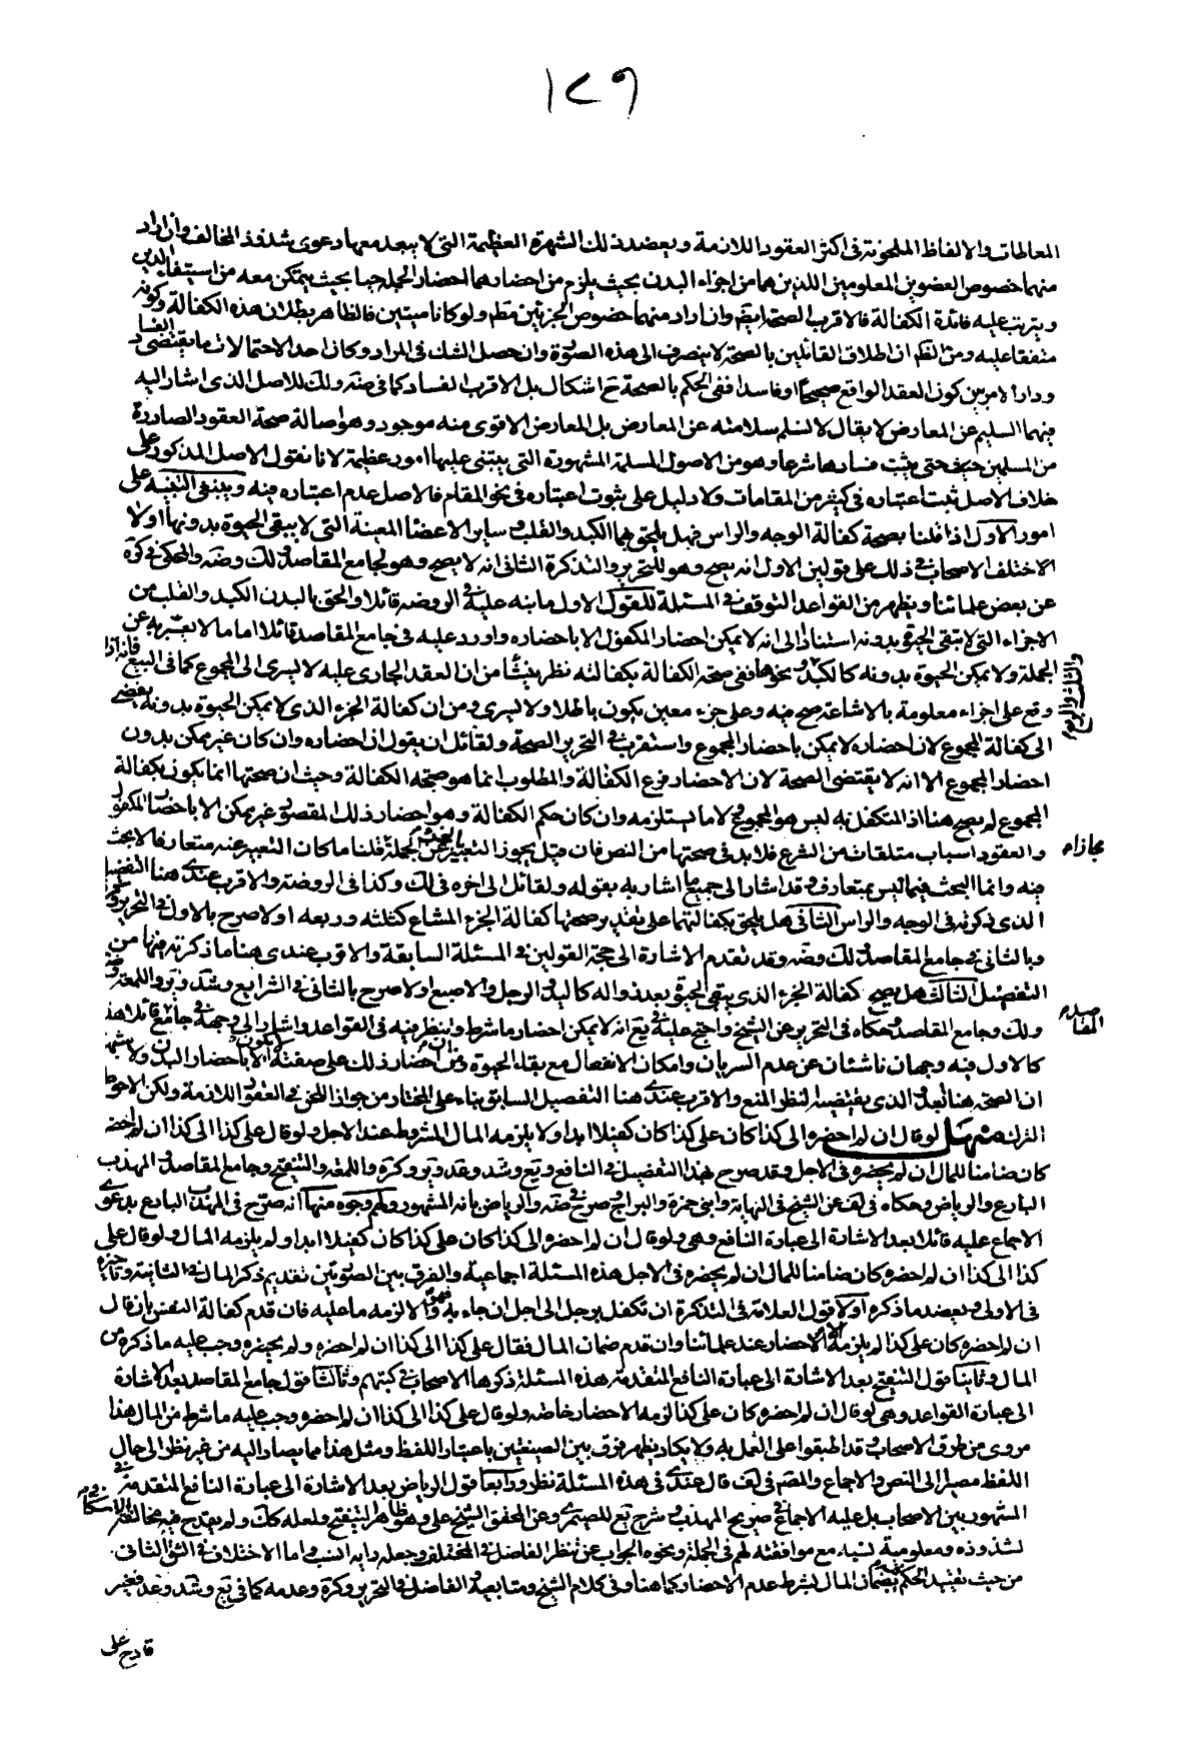 ١٢٩
المعاملات والالفاظ الملحونة في اكثر العقود اللازمة ويعضد ذلك الشهرة العظيمة التي لا يبعد معها دعوى شذوذ المخالف وان اراد
منهما خصوص العضوين المعلومين اللذين هما من اجزاء البدن بحيث يلزم من احضارهما احضار الجملة حيا بحيث يتمكن معه من استيفاء الدين
ويترتب عليه فائدة الكفالة فالاقرب الصحة ايضا وان اراد منهما خصوص الجزئين مطلقا ولو كانا ميتين فالظاهر بطلان هذه الكفالة وكونه
متفقا عليه ومن الظاهر ان اطلاق القائلين بالصحة لا ينصرف الى هذه الصورة وان حصل الشك في المراد وكان احد الاحتمالات ما يقتضى الفساد
ودار الامر بين كون العقد الواقع صحيحا او فاسدا ففي الحكم بالصحة ح اشكال بل الاقرب الفساد كما في ضه وذلك للاصل الذى اشار اليه
فيهما السليم عن المعارض لا يقال لا نسلم سلامته عن المعارض بل المعارض الاقوى منه موجود وهو اصالة صحة العقود الصادرة
من المسلمين حيث حتى يثبت فسادها شرعا وهو من الاصول المسلمة المشهورة التي يبتنى عليها امور عظيمة لانا نقول الاصل المذكور على
خلاف الاصل ثبت اعتباره في كثير من المقامات ولا دليل على ثبوت اعتباره في نحو المقام فالاصل عدم اعتباره فيه وينبغى التنبيه على
امور الاول اذا قلنا بصحة كفالة الوجه والراس فهل يلحق بهما الكبد والقلب وسائر الاعضاء المعينة التي لا يبقى الحيوة بدونها اولا
الاختلف الاصحاب في ذلك على قولين الاول انه يصح وهو للتحرير والتذكرة الثانى انه لا يصح وهو لجامع المقاصد ولك وضه والمحكى في كرة
عن بعض علمائنا ويظهر من القواعد التوقف في المسئلة للقول الاول ما نبه عليه في الروضه قائلا والحق بالبدن الكبد والقلب من
الاجزاء التي لا تبقى الحيوة بدونه استنادا الى انه لا يمكن احضار المكفول الا باحضاره واورد عليه في جامع المقاصد قائلا اما ما لا يعبر به عن
الجملة ولا يمكن الحيوة بدونه كالكبد ونحوها ففي صحة الكفالة بكفالته نظر ينشأ من ان العقد الجارى عليه لا يسرى الى المجموع كما في البيع فانه اذا
والثلث والربع
وقع على اجزاء معلومة بالاشاعة صح فيه وعلى جزء معين يكون باطلا ولا يسرى ومن ان كفالة الجزء الذى لا يمكن الحيوة بدونه يفضى
الى كفالة المجموع لان احضاره لا يمكن باحضار المجموع واستقرب في التحرير الصحة ولقائل ان يقول ان احضاره وان كان غير ممكن بدون
احضار المجموع الا انه لا يقتضى الصحة لان الاحضار فرع الكفالة والمطلوب انما هو صحة الكفالة وحيث ان صحتها انما يكون بكفالة
المجموع لم يصح هنا اذ المتكفل به ليس هو المجموع ولا ما يستلزمه وان كان حكم الكفالة وهو احضار ذلك المقصود غير ممكن الا باحضار المكفول
والعقود اسباب متلقات من الشرع فلا بد في صحتها من النص فان قيل يجوز التعبير بالجزء عن الجملة قلنا ما كان التعبير عنه متعارفا لا بحث
مجازاء
فيه وانما البحث فيما ليس بمتعارف وقد اشار الى جميع ما اشار به بقوله ولقائل الى اخره في لك وكذا في الروضة والاقرب عندى هنا التفصيل
الذى ذكرته في الوجه والراس الثانى هل يلحق بكفالتهما على تقدير صحتها كفالة الجزء المشاع كثلثه وربعه اولا صرح بالاول في التحرير وكرة
وبالثانى في جامع المقاصد ولك وضه وقد تقدم الاشارة الى حجة القولين في المسئلة السابقة والاقرب عندى هنا ما ذكرته فيها من
التفصيل الثالث هل يصح كفالة الجزء الذى يبقى الحيوة بعد زواله كاليد والرجل والاصبع اولا صرح بالثانى في الشرايع وشد وير واللمعة وضه
ولك وجامع المقاصد وحكاه في التحرير عن الشيخ واحتج عليه في يع انه لا يمكن احضار ما شرط وينظر فيه في القواعد واشار الى وجهه في جامع قائلا هذا
المقاصد
كالاول فيه وجهان ناشئان عن عدم السريان وامكان الانفصال مع بقاء الحيوة ومن ان احضار ذلك على صفته لا يكون الا باحضار البدن ولا يشبه
ان الصحة هنا ابعد الذى يقتضيه النظر المنع والاقرب عندى هنا التفصيل السابق بناء على المختار من جواز اللحن في العقود اللازمة ولكن الاحوط
الترك منهل لو قال ان لم احضره الى كذا كان على كذا كان كفيلا ابدا ولا يلزمه المال المشروط عند الاجل ولو قال على كذا الى كذا ان لم احضره
كان ضامنا للمال ان لم يحضره في الاجل وقد صرح بهذا التفصيل في النافع ويع وشد وعد وير وكرة واللمعه والتنقيح وجامع المقاصد والمهذب
البارع والرياض وحكاه في لف عن الشيخ في النهاية وابنى حمزة والبراج وصرح في ضه والرياض بانه المشهور ولهم وجوه منها انه صرح في المهذب البارع بدعوى
الاجماع عليه قائلا بعد الاشارة الى عبارة النافع وهى ولو قال ان لم احضره الى كذا كان على كذا كان كفيلا ابدا ولم يلزمه المال ولو قال على
كذا الى كذا ان لم احضره كان ضامنا للمال ان لم يحضره في الاجل هذه المسئلة اجماعية والفرق بين الصورتين تقديم ذكر المال في الثانية وتاخيره
في الاولى ويعضد ما ذكره اولا قول العلامة في التذكرة ان تكفل برجل الى اجل ان جاء به فهو والا لزمه ما عليه فان قدم كفالة النفس بان قال
ان لم احضره كان على كذا لم يلزمه الا الاحضار عند علمائنا وان قدم ضمان المال فقال على كذا الى كذا ان لم احضره ولم يحضره وجب عليه ما ذكره من
المال وثانيا قول التنقيح بعد الاشارة الى عبارة النافع المتقدمة هذه المسئلة ذكرها الاصحاب في كتبهم وثالثا قول جامع المقاصد بعد الاشارة
الى عبارة القواعد وهى لو قال ان لم احضره كان على كذا لزمه الاحضار خاصة ولو قال على كذا الى كذا ان لم احضره وجب عليه ما شرط من المال هذا
مروى من طرق الاصحاب وقد اطبقوا على العمل به ولا يكاد يظهر فرق بين الصيغتين باعتبار اللفظ ومثل هذا مما يصار اليه من غير نظر الى حال
اللفظ مصيرا الى النص والاجماع والمصنف في لف قال عندى في هذه المسئلة نظر ورابعا قول الرياض بعد الاشارة الى عبارة النافع المتقدمة في
المشهور بين الاصحاب بل عليه الاجماع في صريح المهذب وشرح يع للصيمرى وعن المحقق الشيخ على وهو ظاهر التنقيح ولعله كك ولم يقدح فيه مخالفة الاسكافى
لشذوذه ومعلومية نسبه مع موافقته لهم في الجملة ونحوه الجواب عن نظر الفاضل في المختلف وجعله رايه انسب واما الاختلاف في الشق الثانى
من حيث تقييد الحكم فيه بضمان المال بشرط عدم الاحضار كما هنا وفي كلام الشيخ ومتابعيه والفاضل في التحرير وكرة وعدمه كما في يع وشد وعد فغير
قادح على